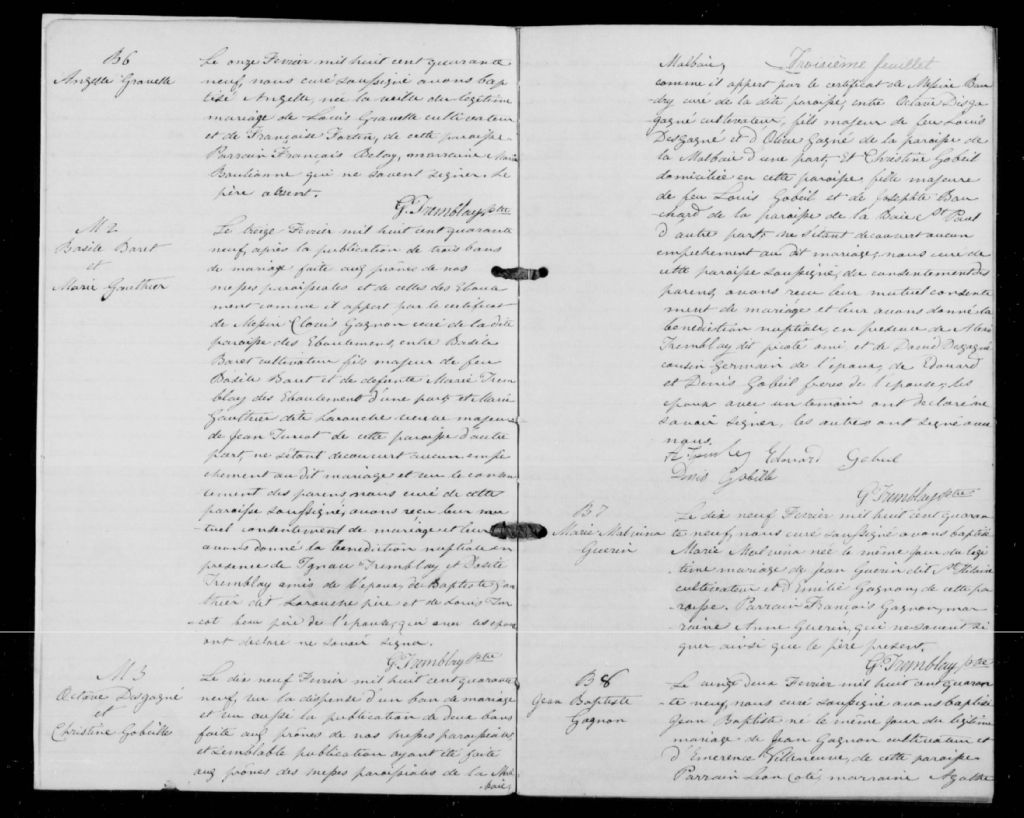 B6
Angelle Gravelle
Le onze Fevrier mil huit cent quarante
neuf, nous curé soussigné avons bap
tisé Angelle, née la veille du légitime
mariage de Louis Gravelle cultivateur
et de Françoise Fortin, de cette paroisse
Parrain François Belay, marraine Marie
qui ne savent signer. Le
père absent.
G. Tremblay Ptre
M 2
Basile Baret
et
Marie Gauthier
Le treize Fevrier mil huit cent quarante
neuf, après la publication de trois bans
de mariage faite aux prônes de nos
messes paroissiales et de celles des Eboule
ment comme il appert par le certificat
de Messire Clovis Gagnon curé de la dite
paroisse des Eboulemens, entre Basile
Baret cultivateur fils majeur de feu
Basile Baret et de defunte Marie Trem
blay des Eboulement d'une part, et Marie
Gauthier dite Larouche veuve majeure
de Jean Turcot de cette paroisse d'autre
part, ne s'étant decouvert aucun empê
chement au dit mariage et vu le consen
tement des parens, nous curé de cette
paroisse soussigné, avons reçu leur mu
tuel consentement de mariage et leur
avons donné la bénédiction nuptiale en
presence de Ignace Tremblay et Dosité
Tremblay amis de l'époux, de Baptiste Gau
thier dit Larouche père et de Louis Tur
cot beau père de l'épouse, qui avec les époux
ont declaré ne savoir signer.
G. Tremblay Ptre
M 3
Octave Desgagné
et
Christine Gobeille
Le dix neuf Fevrier mil huit cent quarante
neuf, vu la dispense d'un ban de mariage
et vu aussi la publication de deux bans
faite aux prônes de nos messes paroissiales
et semblable publication ayant été faite
aux prônes des messes paroissiales de la Mal
baie,
Malbaie, Troisième feuillet
comme il appert par le certificat de Messire Bau
dry curé de la dite paroisse, entre Octave Desga
gagné cultivateur, fils majeur de feu Louis
Desgagné et d'Olive Gagné de la paroisse de
la Malbaie d'une part, Et Christine Gobeil
domiciliée en cette paroisse, fille majeure
de feu Louis Gobeil et de Josephte Bou
chard de la paroisse de la Baie St Paul
d'autre part, ne s'étant decouvert aucun
empêchement au dit mariage, nous curé de
cette paroisse soussigné, du consentement des
parens, avons reçu leur mutuel consente
ment de mariage et leur avons donné la
bénédiction nuptiale, en presence de Alexis
Tremblay dit picoté ami et de David Desgagné
cousin germain de l'époux, de Edouard
et Denis Gobeil freres de l'épouse, les
époux avec un temoin ont declaré ne
savoir signer, les autres ont signé avec
nous.
Edouard Gobeil
Denis Gobeille
G. Tremblay Ptre
B 7
Marie Malvina
Guerin
Le dix neuf Fevrier mil huit cent quaran
te neuf, nous curé soussigné avons baptisé
Marie Malvina née le même jour du légi
time mariage de Jean Guerin dit St Hilaire
cultivateur et d'Emilie Gagnon, de cette pa
roisse. Parrain François Gagnon, mar
raine Anne Guerin, qui ne savent si
gner ainsi que le père présent.
G. Tremblay Ptre
B 8
Jean Baptiste
Gagnon
Le vingt deux Fevrier mil huit cent quaran
te neuf, nous curé soussigné avons baptisé
Jean Baptiste né le même jour du légitime
mariage de Jean Gagnon cultivateur et
d'Emerence Villeneuve, de cette paroisse
Parrain Léon Coté, marraine Agathe